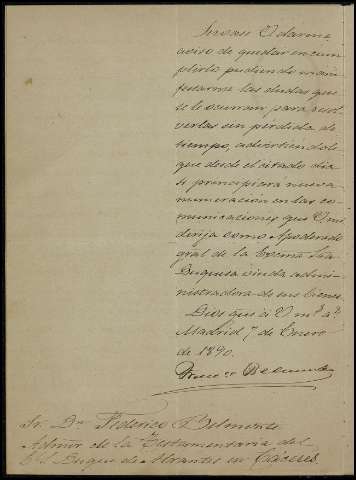 Sirvase V darme
aviso de quedar en cum
plirlo pudiendo mani
festarme las dudas que
se le ocurran para resol
verlas sin pérdida de
tiempo, advirtiendole
que desde el citado dia
se principiará nueva
numeracion en las co
municaciones que V me
dirija como Apoderado
gral de la Excma Sra
Duquesa viuda admi
nistradora de sus bienes.
Dios gue á V ms as
Madrid 7 de Enero
de 1890.
Sr. Dn Federico Belmonte
Admor de la Testamentaria del
Duque de Abrantes en Cáceres.